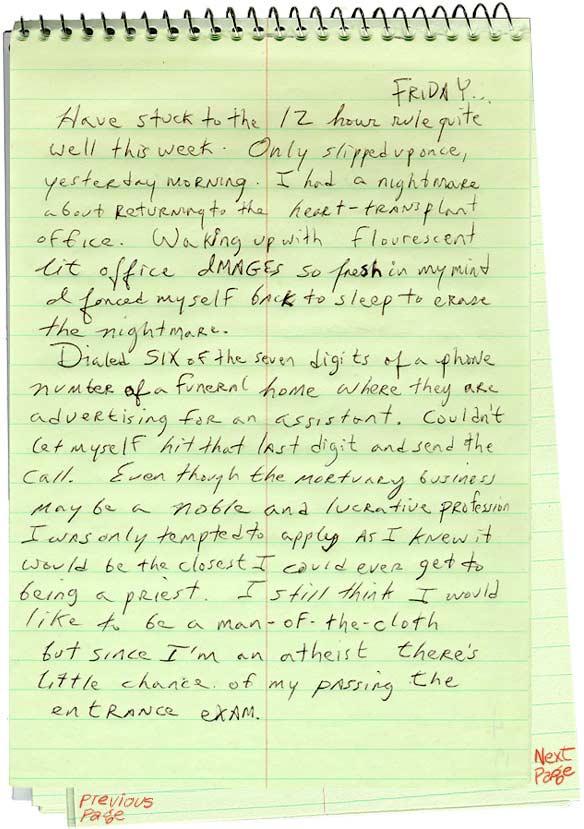 FRIDAY...
Have stuck to the 12 hour rule quite
well this week. Only slipped up once,
yesterday morning. I had a nightmare
about returning to the heart-transplant
office. Waking up with flourescent
lit office iMAGEs so fresh in my mind
I forced myself back to sleep to erase
the nightmare.
Dialed SIX of the seven digits of a phone
number of a funeral home where they are
advertising for an assistant. Couldn't
let myself hit that last digit and send the
call. Even though the mortuary business
may be a noble and lucrative profession
I was only tempted to apply as I knew it
would be the closest I could ever get to
being a priest. I still think I would
like to be a man-of-the-cloth
but since I'm an atheist there's
little chance of my passing the
entrance exam.
Next
Page
Previous
Page